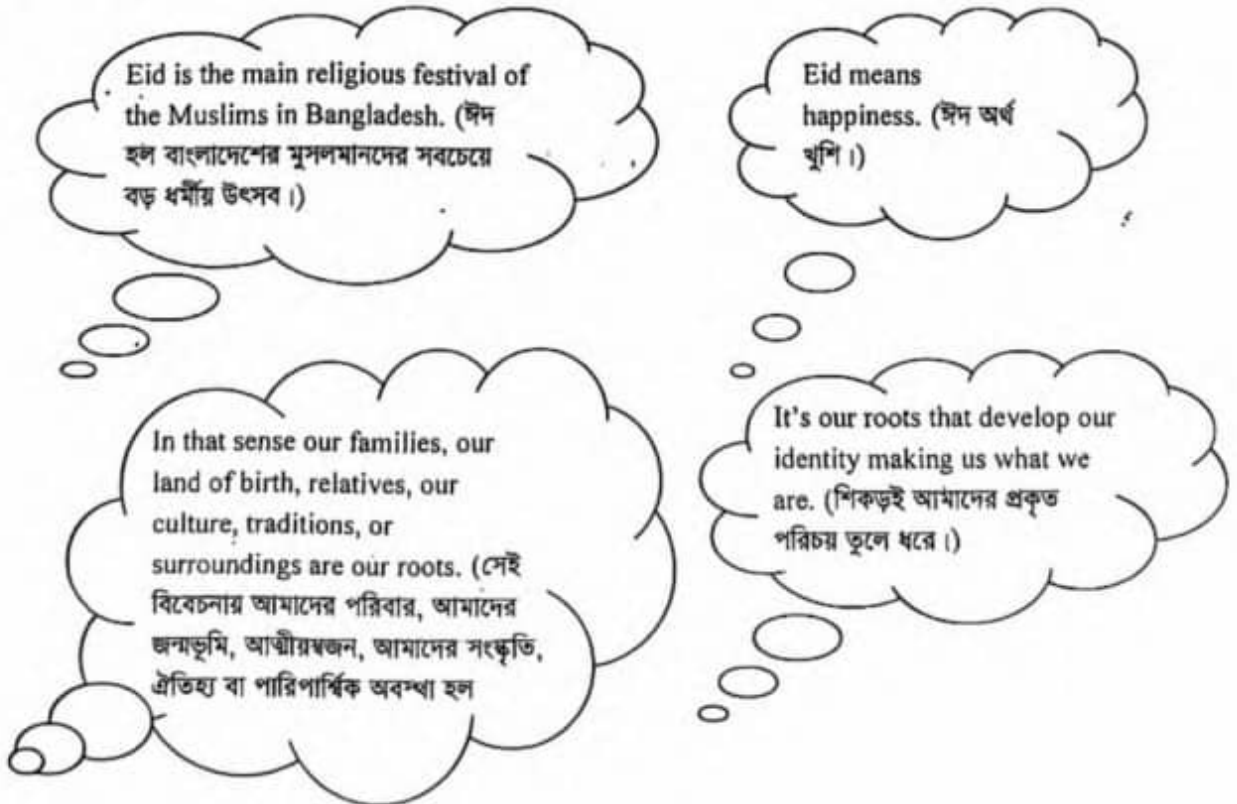 Eid is the main religious festival of
the Muslims in Bangladesh. (ঈদ
হল বাংলাদেশের মুসলমানদের সবচেয়ে
বড় ধর্মীয় উৎসব।)
Eid means
happiness. (ঈদ অর্থ
খুশি।)
In that sense our families, our
land of birth, relatives, our
culture, traditions, or
surroundings are our roots. (সেই
বিবেচনায় আমাদের পরিবার, আমাদের
জন্মভূমি, আত্মীয়স্বজন, আমাদের সংস্কৃতি,
ঐতিহ্য বা পারিপার্শ্বিক অবস্থা হল
It's our roots that develop our
identity making us what we
are. (শিকড়ই আমাদের প্রকৃত
পরিচয় তুলে ধরে।)